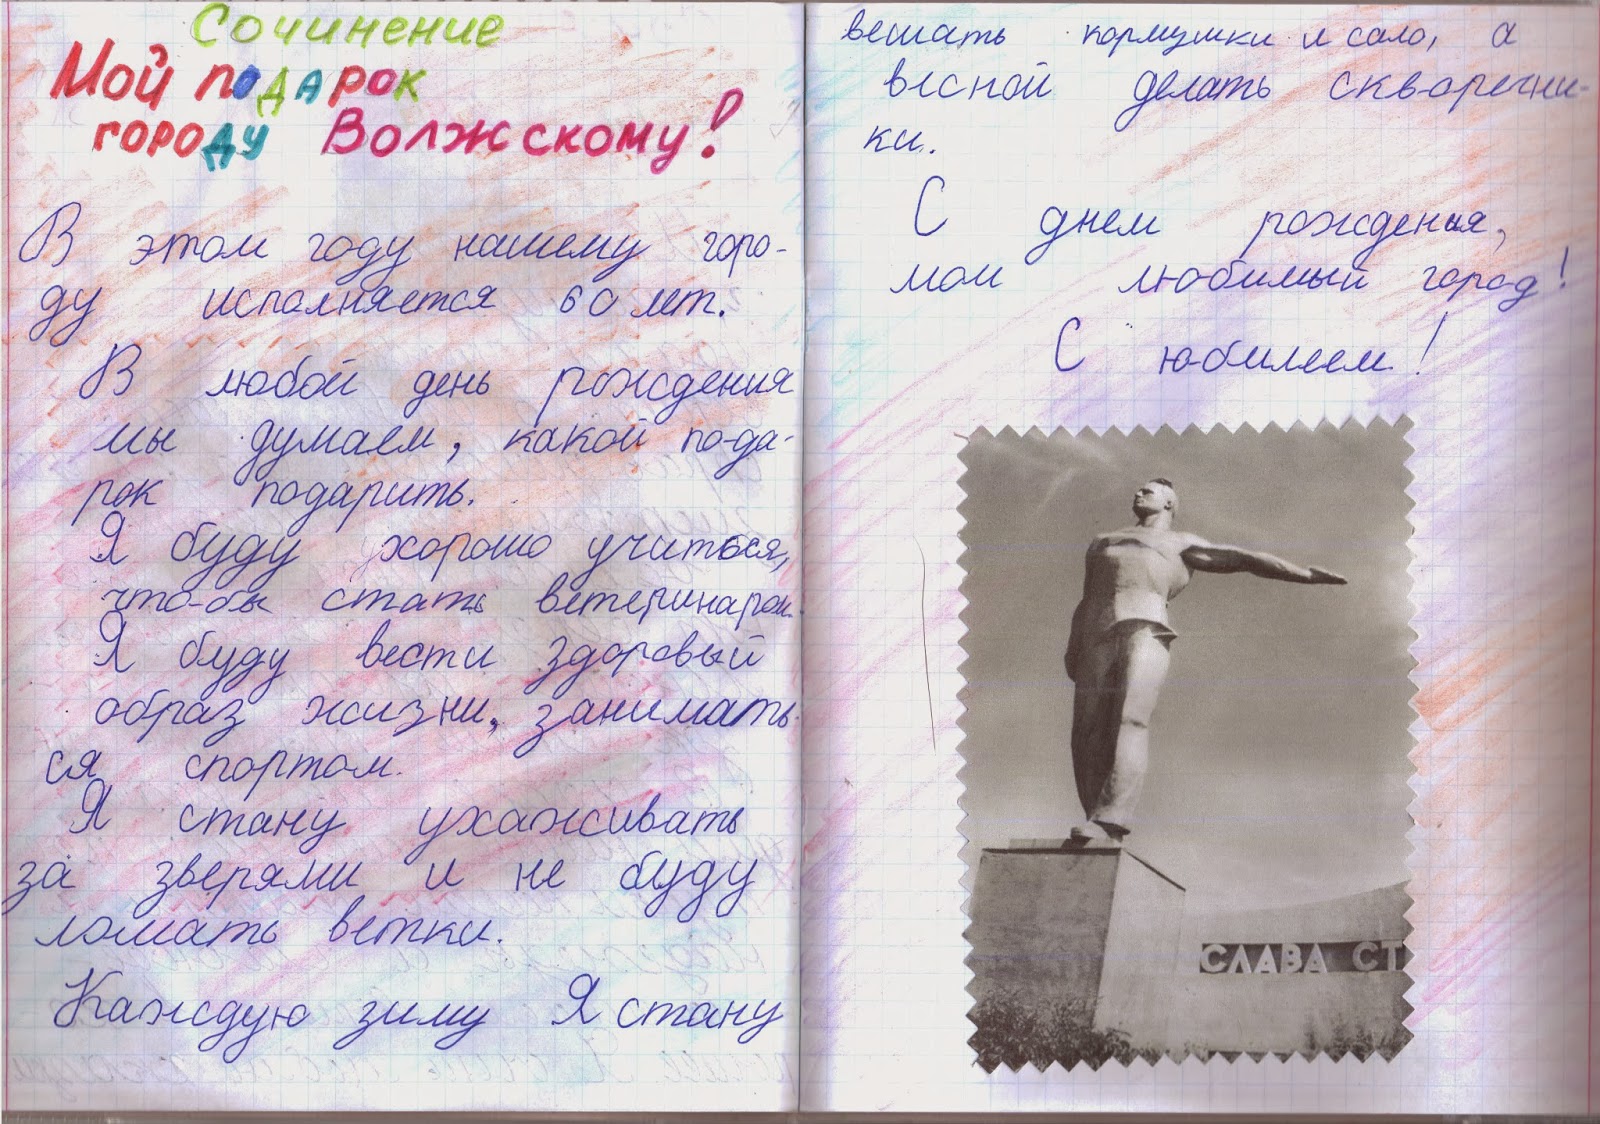 Сочинение
Мой подарок
городу Волжскому!
В этом году нашему горо-
ду исполняется 60 лет.
В любой день рождения
мы думаем, какой по-да-
рок подарить.
Я буду хорошо учиться,
что-бы стать ветеринаром.
Я буду вести здоровый
образ жизни, занимать-
ся спортом.
Я стану ухаживать
за зверями и не буду
ломать ветки.
Каждую зиму Я стану
вешать кормушки и сало, а
весной делать скворечни-
ки.
С днем рождения,
мой любимый город!
С юбилеем!
СЛАВА СТ